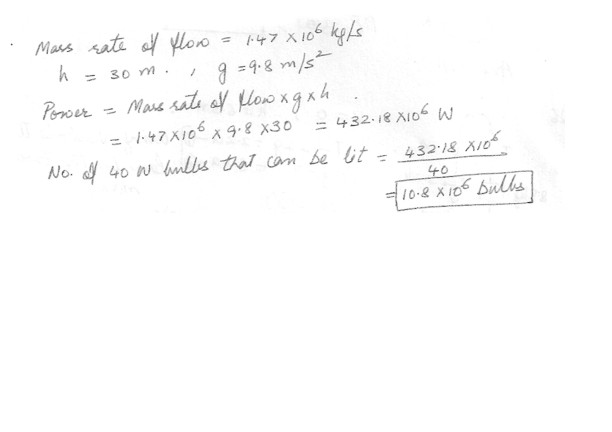 Mass rate of flow = 1.47 x 10⁶ kg/s
h = 30 m. , g = 9.8 m/s²
Power = Mass rate of flow x g x h .
= 1.47 x 10⁶ x 9.8 x 30 = 432.18 x 10⁶ W
No. of 40 W bulbs that can be lit = 432.18 x 10⁶ / 40
= 10.8 x 10⁶ bulbs